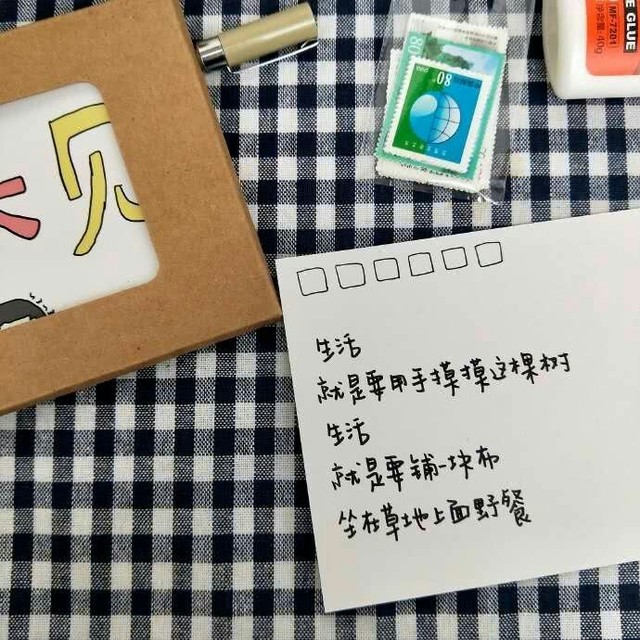 见
80
80
E GLUE
MF-7201
净含量: 40g
生活
就是要用手摸摸这棵树
生活
就是要铺一块布
坐在草地上面野餐